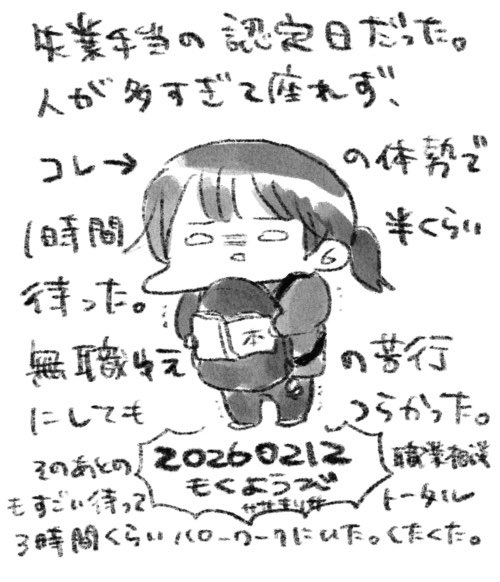 失業手当の認定日だった。
人が多すぎて座れず、
コレ→の体勢で
1時間半くらい
待った。
無職ゆえの苦行
にしてもつらかった。
本
20260212
もくようび
そのあとの職業相談
もすごい待ってトータル
3時間くらいハローワークにいた。くたくた。